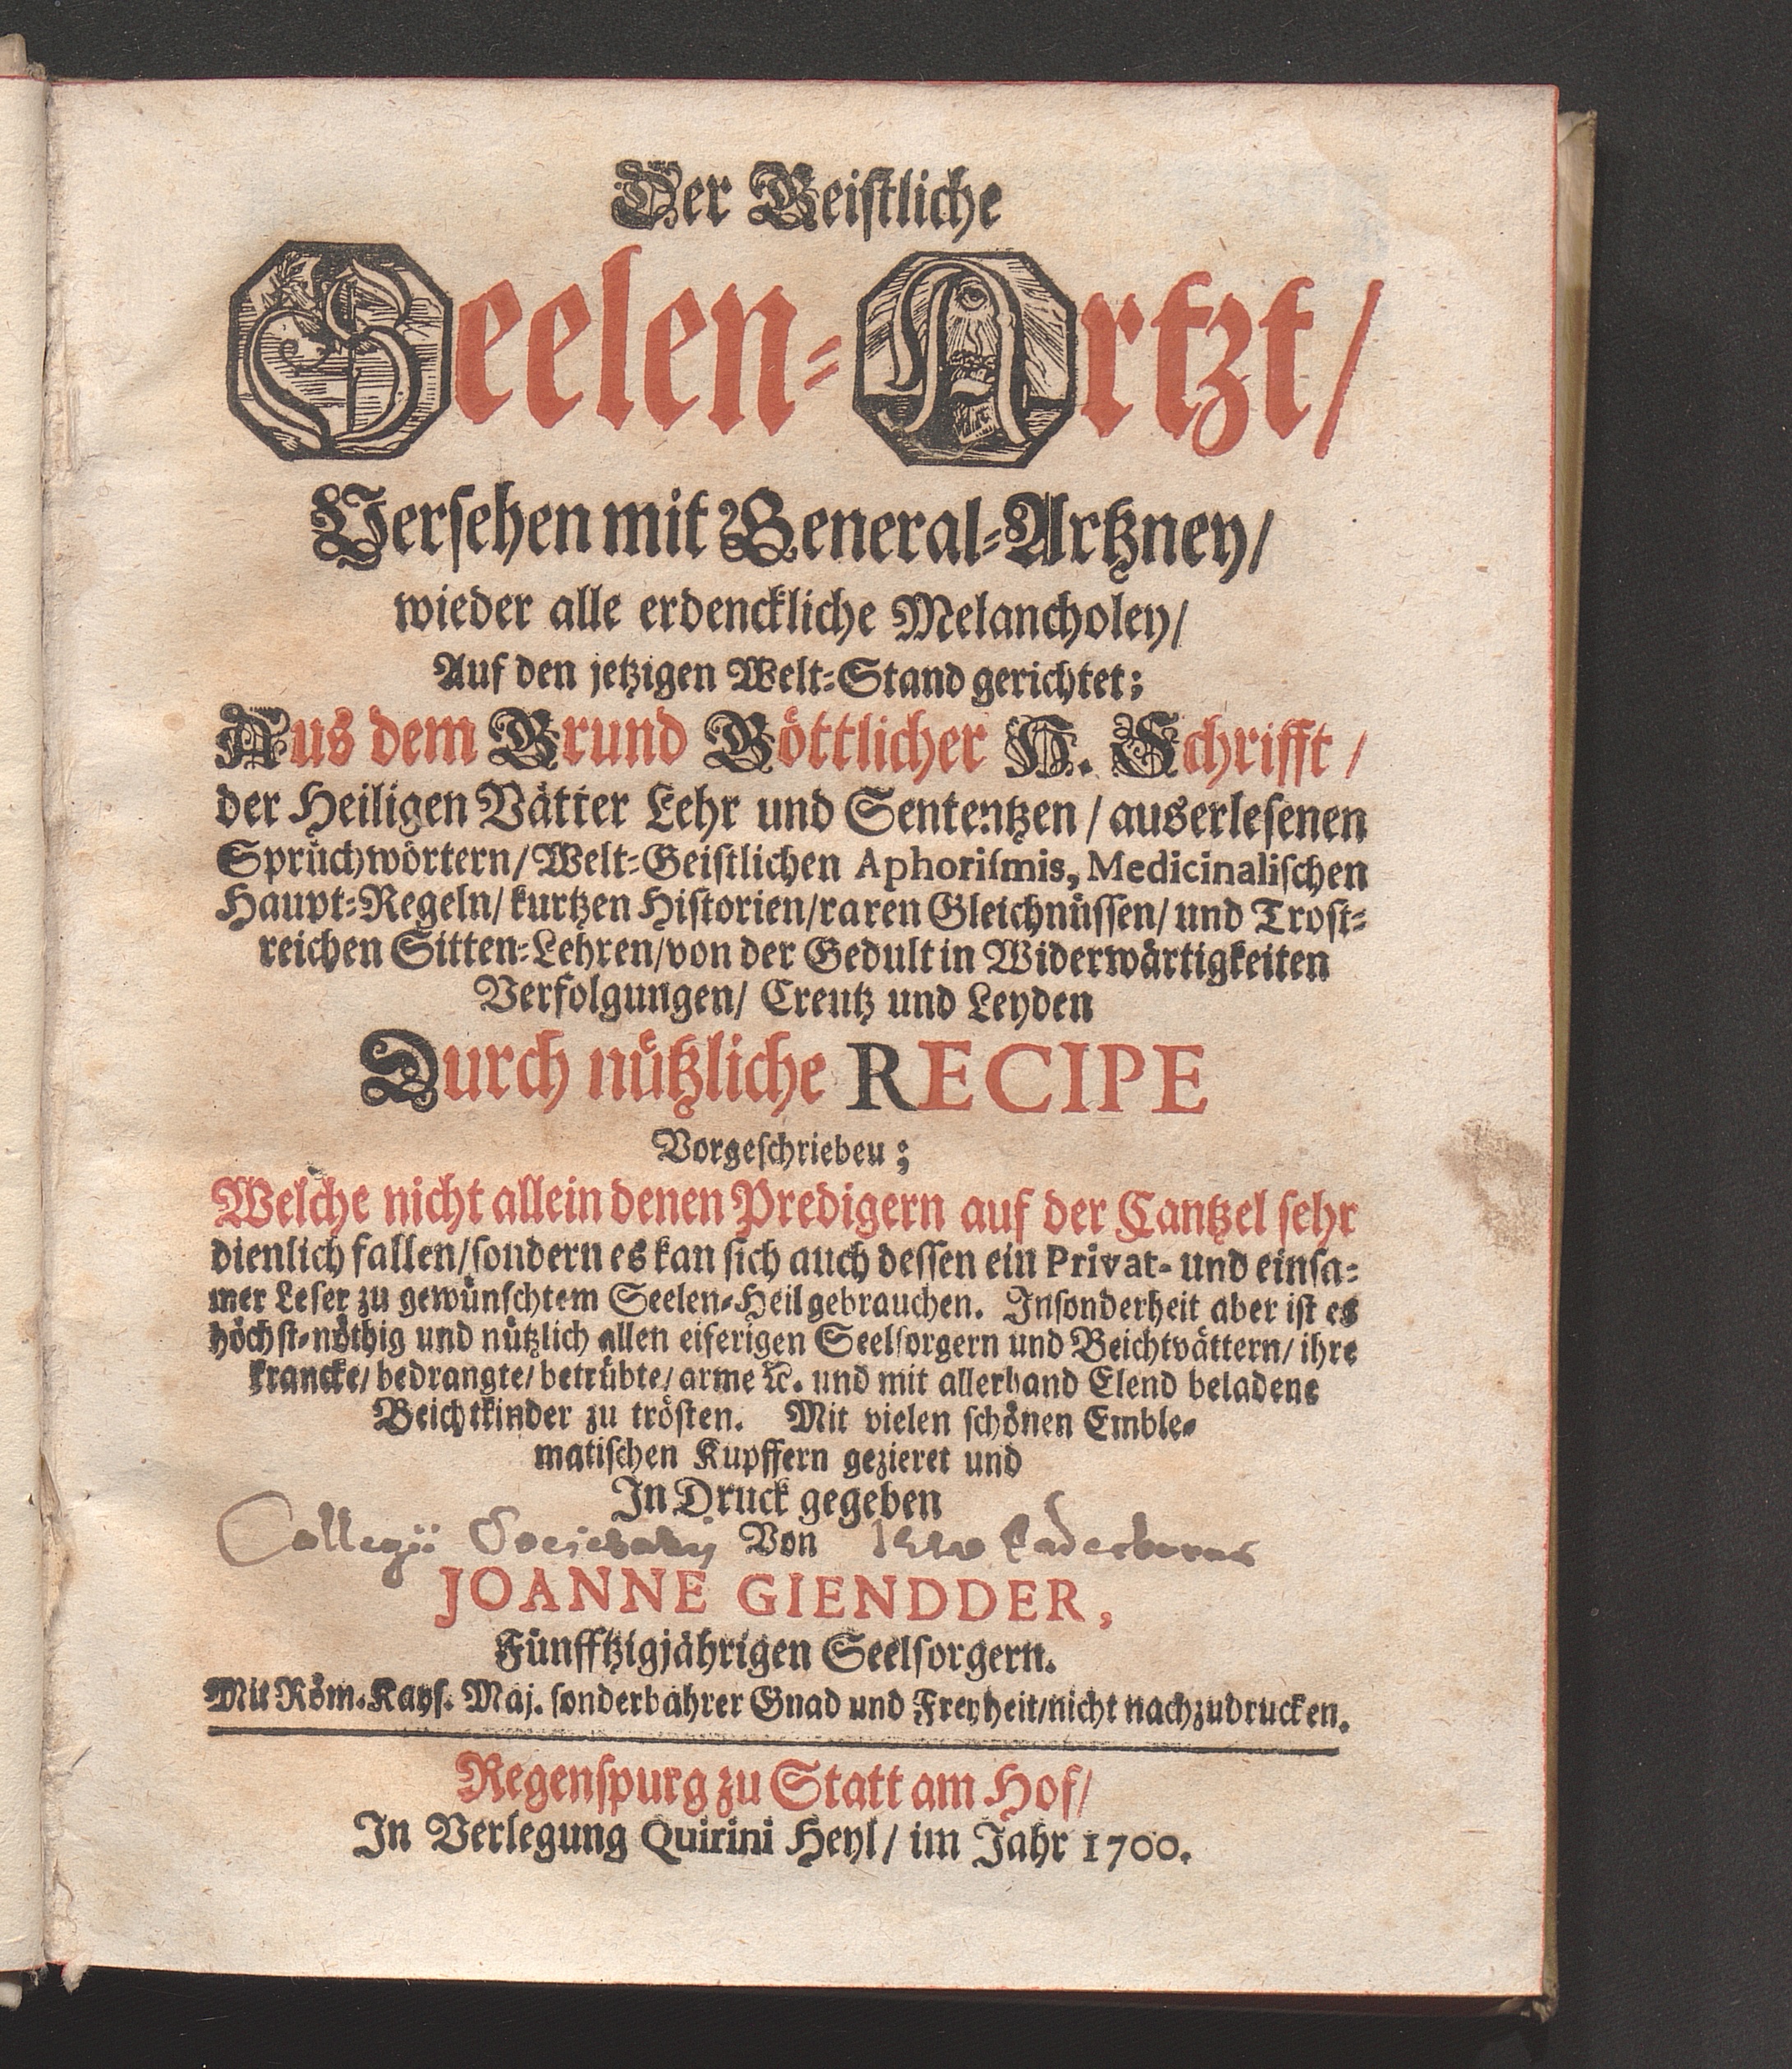 Der Geistliche
Seelen-Artzt/
Versehen mit General-Artzney/
wieder alle erdenckliche Melancholey/
Auf den jetzigen Welt-Stand gerichtet;
Aus dem Grund Göttlicher H. Schrifft /
der Heiligen Vätter Lehr und Sententzen / auserlesenen
Sprüchwörtern/ Welt-Geistlichen Aphorismis, Medicinalischen
Haupt-Regeln/ kurtzen Historien/ raren Gleichnüssen/ und Trost-
reichen Sitten-Lehren/ von der Gedult in Widerwärtigkeiten
Verfolgungen/ Creutz und Leyden
Durch nützliche RECIPE
Vorgeschrieben;
Welche nicht allein denen Predigern auf der Cantzel sehr
dienlich fallen/ sondern es kan sich auch dessen ein Privat- und einsa-
mer Leser zu gewünschtem Seelen-Heil gebrauchen. Insonderheit aber ist es
höchst-nöthig und nützlich allen eiferigen Seelsorgern und Beichtvättern/ ihre
krancke/ bedrangte/ betrübte/ arme ꝛc. und mit allerhand Elend beladene
Beichtkinder zu trösten. Mit vielen schönen Emble-
matischen Kupffern gezieret und
In Druck gegeben
Collegii Societatis Von Paderbornae
JOANNE GIENDDER,
Fünfftzigjährigen Seelsorgern.
Mit Röm. Kays. Maj. sonderbahrer Gnad und Freyheit/ nicht nachzudrucken.
Regenspurg zu Statt am Hof/
In Verlegung Quirini Heyl/ im Jahr 1700.